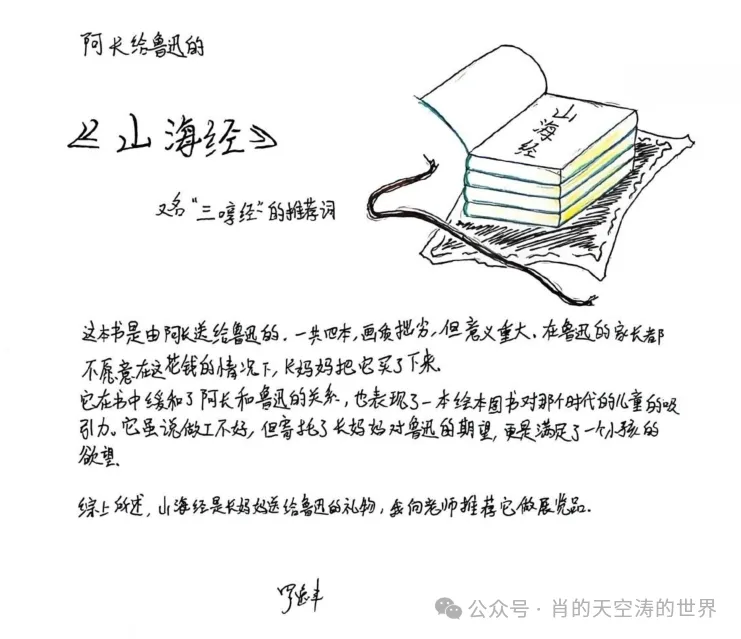 阿长给鲁迅的
《山海经》
又名“三哼经”的推荐词
山海经
这本书是由阿长送给鲁迅的.一共四本,画质拙劣,但意义重大.在鲁迅的家长都
不愿意在这花钱的情况下,长妈妈把它买了下来.
它在书中缓和了阿长和鲁迅的关系,也表现了一本绘本图书对那个时代的儿童的吸
引力。它虽说做工不好,但寄托了长妈妈对鲁迅的期望,更是满足了一个小孩的
欲望.
综上所述,山海经是长妈妈送给鲁迅的礼物,我向老师推荐它做展览品.
公众号·肖的天空涛的世界